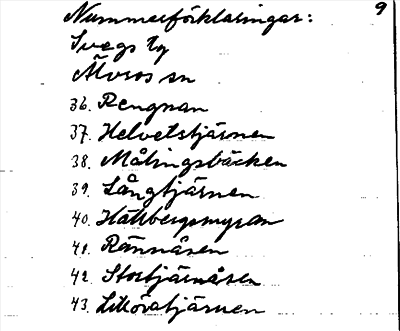 Nummerförklaringar: 9
Svegs tg
Älvros sn
36. Rengnan
37. Helvetstjärnen
38. Målingsbäcken
39. Långtjärnen
40. Hällbergsmyran
41. Rännåsen
42. Stortjärnåsen
43. Lillöratjärnen